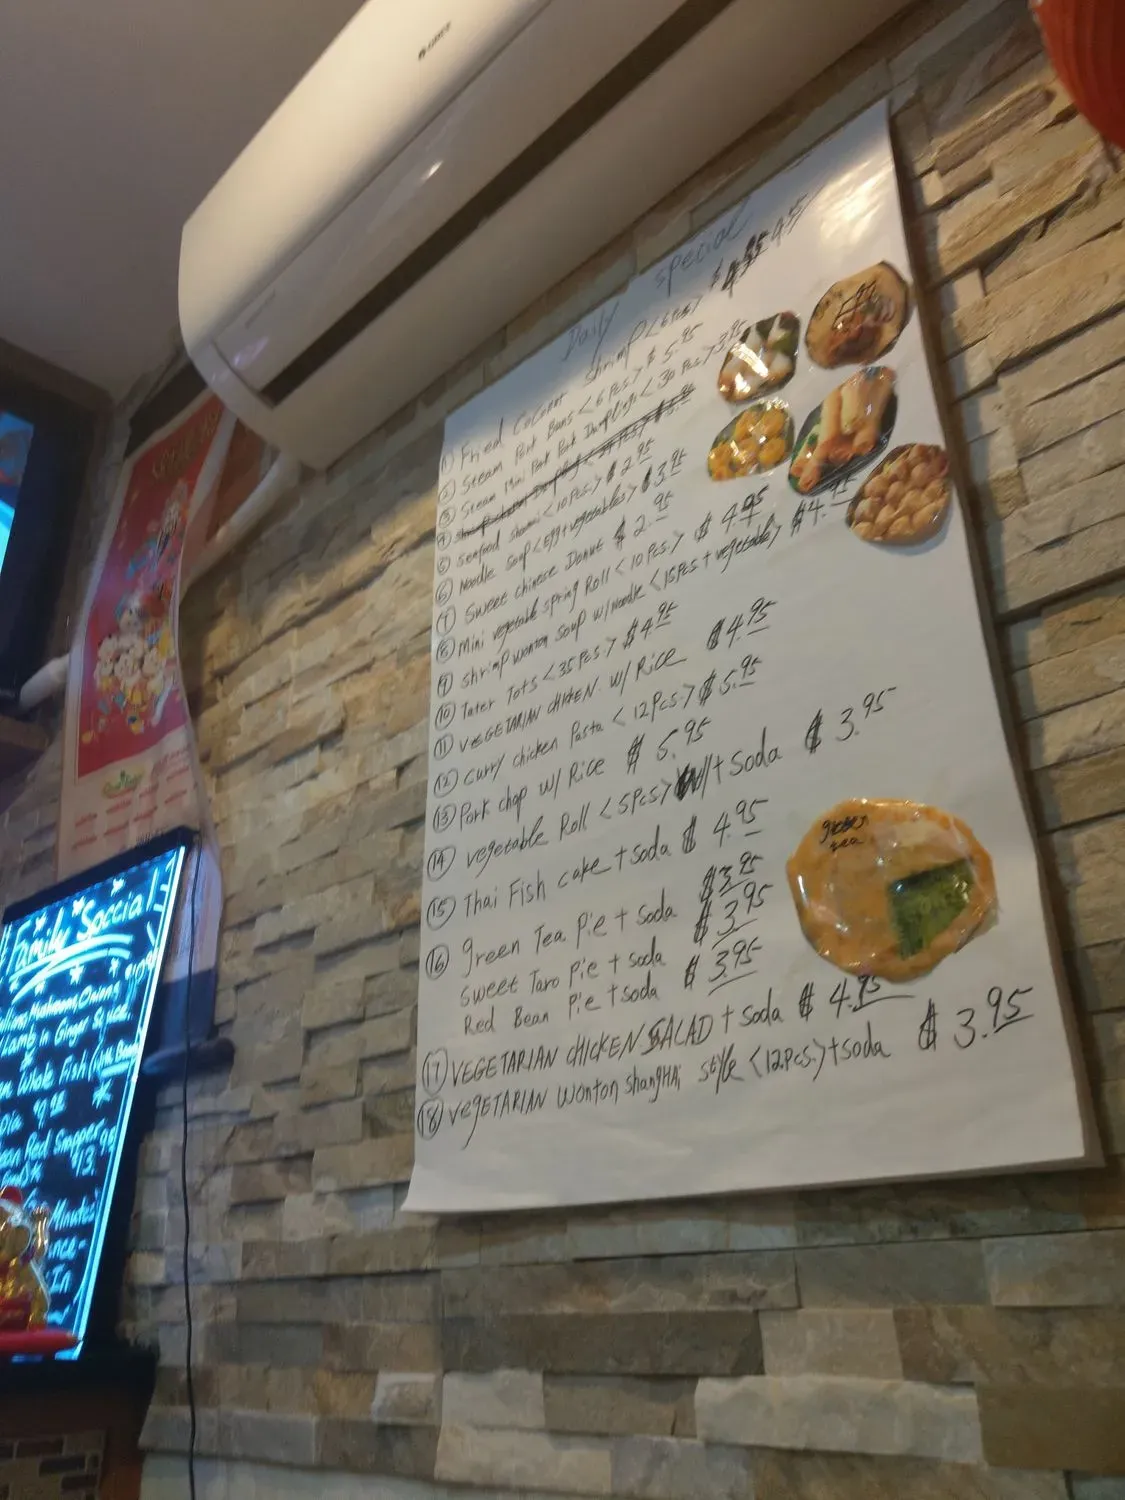 GREE
Daily special
① Fried Coconut shrimp <6 Pcs> $ 4.95
② Steam Pork Buns <6 Pcs.> $ 5.95
③ Steam Mini Pork <30 Pcs.> 3.95
④
⑤ seafood shumai <10 Pcs.> $ 2.95
⑥ Noodle soup <Egg+vegetables> $ 3.95
⑦ Sweet chinese Donut $ 2.95
⑧ Mini vegetable spring Roll <10 Pcs.> $ 4.95
⑨ shrimp wonton soup w/ Noodle <15 Pcs + vegetable> $ 4.95
⑩ Tater Tots <35 Pcs.> $ 4.95
⑪ VEGETARIAN CHICKEN w/ Rice $ 4.95
⑫ Curry chicken Pasta <12 Pcs.> $ 5.95
⑬ Pork chop w/ Rice $ 5.95
⑭ vegetable Roll <5 Pcs> + soda $ 3.95
⑮ Thai Fish cake + soda $ 4.95
⑯ green Tea Pie + soda $ 3.95
sweet Taro Pie + soda $ 3.95
Red Bean Pie + soda $ 3.95
⑰ VEGETARIAN CHICKEN SALAD + soda $ 4.95
⑱ VegETARIAN wonton shangHAi style <12 Pcs.> + soda $ 3.95
green tea
Family Soccial
Mushroom, Onions
Lamb in Ginger
Whole Fish
Pie
Red Snapper
13.95
Minutes
In